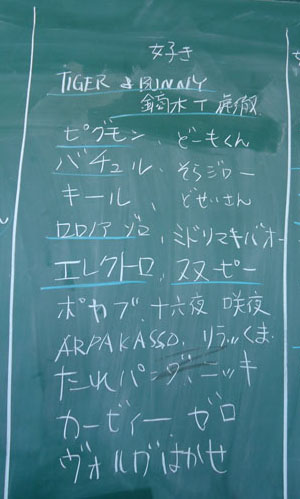 女子き
TIGER & BUNNY
鏑木T虎徹
ピグモン、どーもくん
バチュル、そらジロー
キール、どせいさん
ロロノア ゾロ、ミドリマキバオー
エレクトロ、スヌーピー
ポカブ、十六夜 咲夜
ARPAKASSO、リラックま
たれパンダ、ニッキ
カービィー ゼロ
ヴォルグはかせ